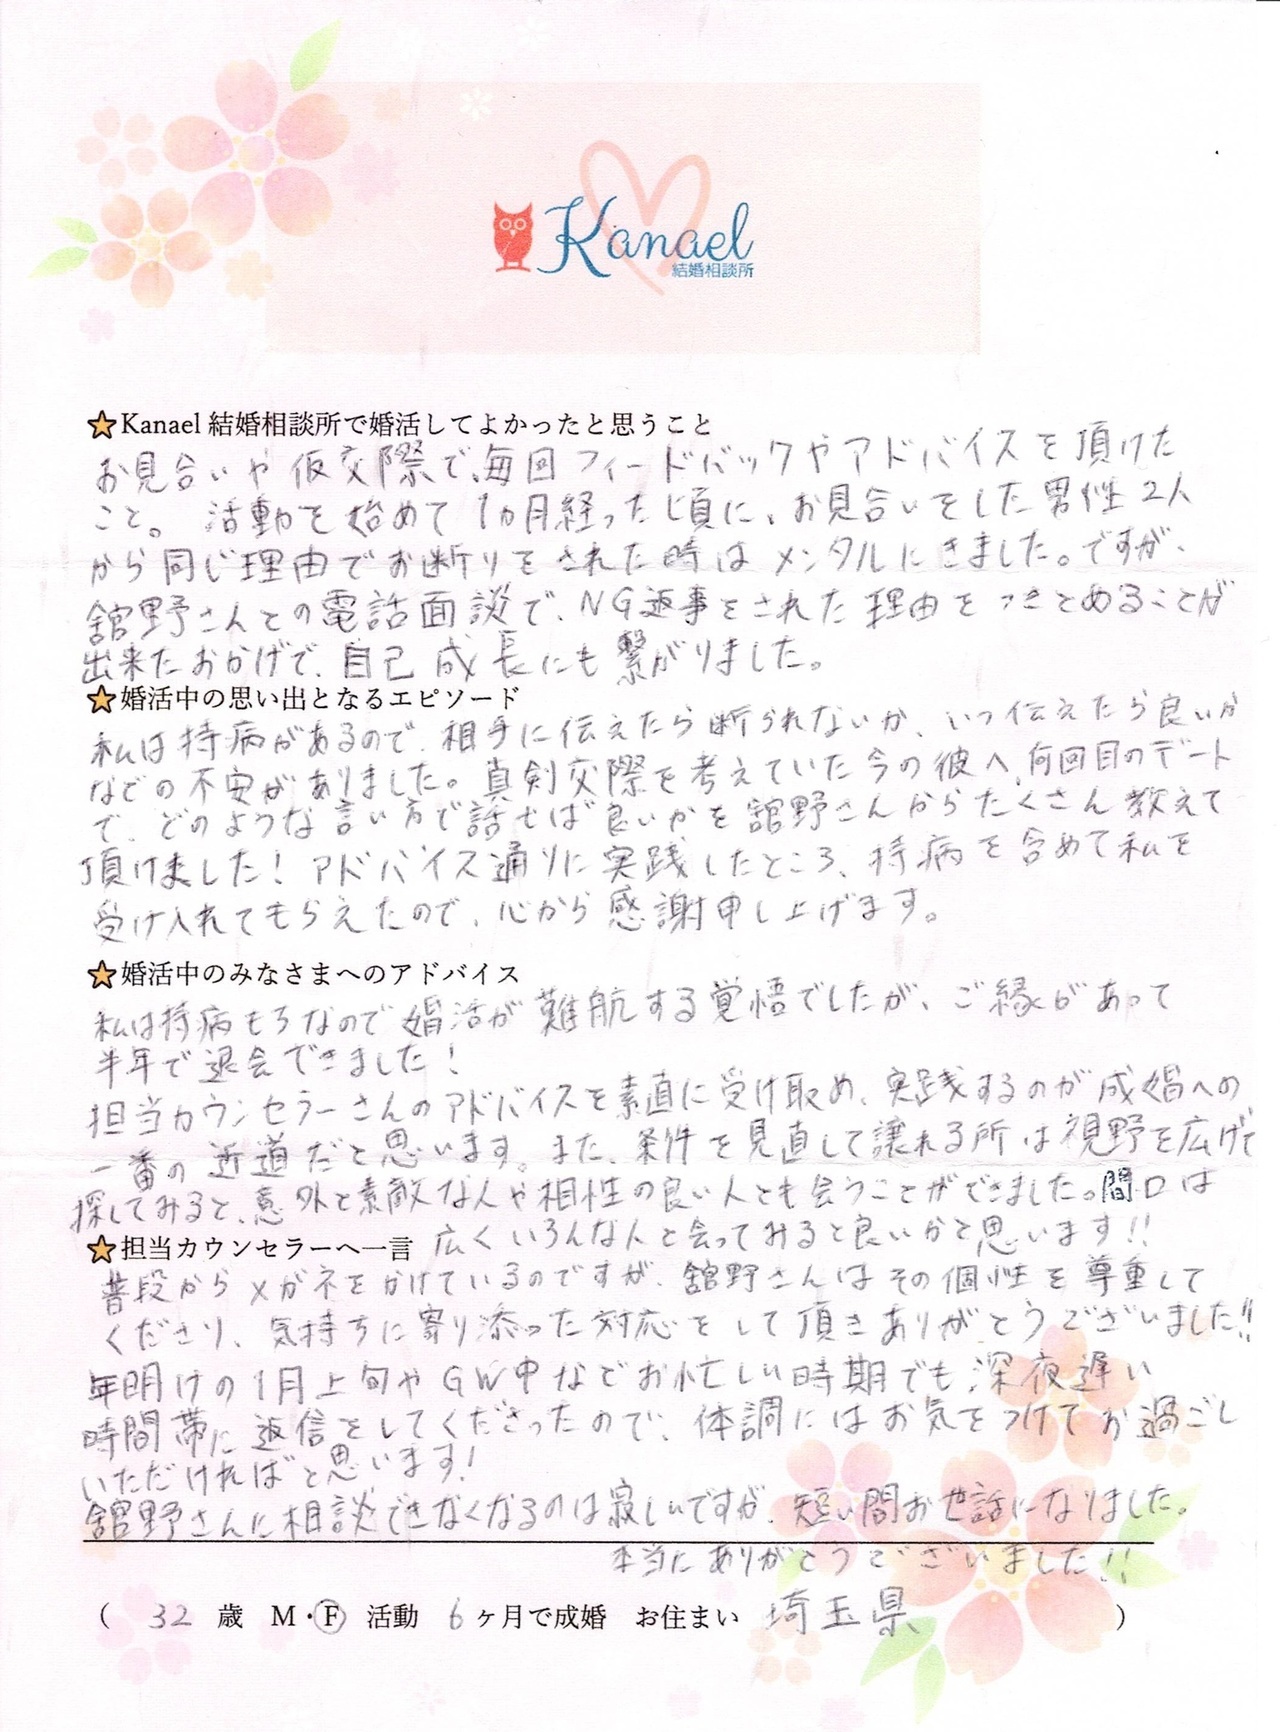 Kanael
結婚相談所
Kanael 結婚相談所で婚活してよかったと思うこと
お見合いや仮交際で、毎回フィードバックやアドバイスを頂けた
こと。活動を始めて1ヵ月経った頃に、お見合いをした男性2人
から同じ理由でお断りをされた時はメンタルにきました。ですが、
舘野さんとの電話面談で、NG返事をされた理由をつきとめることが
出来たおかげで、自己成長にも繋がりました。
婚活中の思い出となるエピソード
私は持病があるので、相手に伝えたら断られないか、いつ伝えたら良いか
などの不安がありました。真剣交際を考えていた今の彼へ、何回目のデート
で、どのような言い方で話せば良いかを舘野さんからたくさん教えて
頂けました!アドバイス通りに実践したところ、持病を含めて私を
受け入れてもらえたので、心から感謝申し上げます。
婚活中のみなさまへのアドバイス
私は持病もちなので婚活が難航する覚悟でしたが、ご縁があって
半年で退会できました!
担当カウンセラーさんのアドバイスを素直に受け取め、実践するのが成婚への
一番の近道だと思います。また、条件を見直して譲れる所は視野を広げて
探してみると、意外と素敵な人や相性の良い人とも会うことができました。間口は
広くいろんな人と会ってみると良いかと思います!!
担当カウンセラーへ一言
普段からメガネをかけているのですが、舘野さんはその個性を尊重して
くださり、気持ちに寄り添った対応をして頂きありがとうございました!!
年明けの1月上旬やGW中などお忙しい時期でも深夜遅い
時間帯に返信をしてくださったので、体調にはお気をつけてお過ごし
いただければと思います!
舘野さんに相談できなくなるのは寂しいですが、短い間お世話になりました。
本当にありがとうございました!!
( 32 歳 M・F 活動 6ヶ月で成婚 お住まい 埼玉県 )